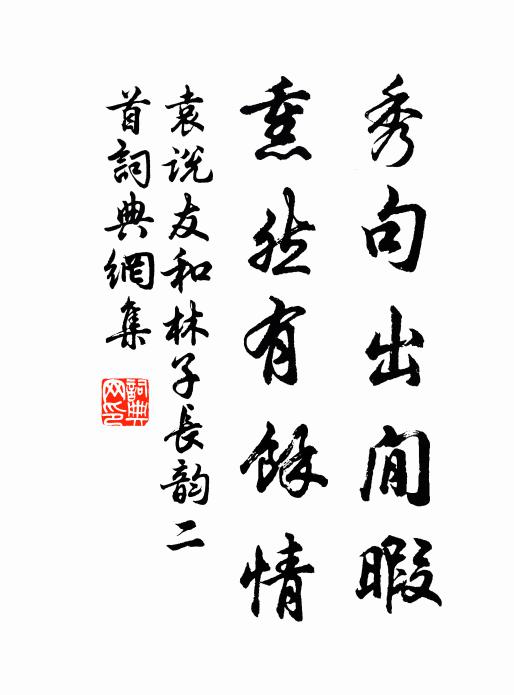 秀句出閒暇
熏然有餘情
袁説友和林子長韵二
首詞典網集
詞典網印